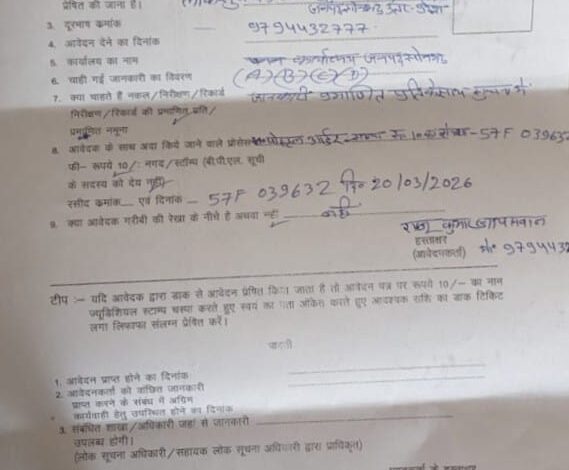 प्रेषित की जाना है।
3. दूरभाष कमांक — 9794432777
4. आवेदन देने का दिनांक
5. कार्यालय का नाम कार्यालय जनपद
6. चाही गई जानकारी का विवरण (A)(B)(C)(D)
7. क्या चाहते है नकल/निरीक्षण/रिकार्ड जानकारी प्रमाणित
निरीक्षण/रिकार्ड की प्रमाणित प्रति/
प्रमाणित नमूना
8. आवेदक के साथ अदा किये जाने वाले प्रोसेस पोस्टल आर्डर 57F 039632
फी– रूपये 10/: नगद/स्टॉम्प (बी.पी.एल. सूची
के सदस्य को देय नहीं)
रसीद कमांक एवं दिनांक – 57F 039632 दि० 20/03/2026
9. क्या आवेदक गरीबी की रेखा के नीचे है अथवा नहीं नहीं
हस्ताक्षर
(आवेदनकर्ता) मो० 9794432
टीप :– यदि आवेदक द्वारा डाक से आवेदन प्रेषित किया जाता है तो आवेदन पत्र पर रूपये 10/– का नान
ज्यूडिशियल स्टाम्प चस्पा करते हुए स्वयं का पता अंकित करते हुए आवश्यक राशि का डाक टिकिट
लगा लिफाफा संलग्न प्रेषित करें।
पावती
1. आवेदन प्राप्त होने का दिनांक
2. आवेदनकर्ता को वांछित जानकारी
प्राप्त करने के संबंध में अग्रिम
कार्यवाही हेतु उपस्थित होने का दिनांक
3. संबंधित शाखा/अधिकारी जहां से जानकारी
उपलब्ध होगी।
(लोक सूचना अधिकारी/सहायक लोक सूचना अधिकारी द्वारा प्राधिकृत)